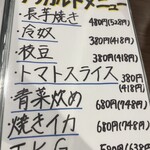 アラカルトメニュー
・長芋焼き 480円(528円)
・冷奴 380円(418円)
・枝豆 380円(418円)
・トマトスライス 380円(418円)
・青菜炒め 680円(748円)
・焼きイカ 680円(748円)